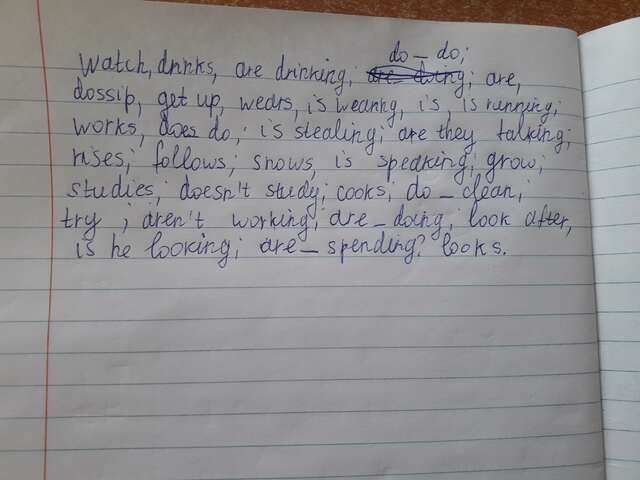 do – do;
Watch, drinks, are drinking; are doing; are,
dossip, get up, wears, is wearing, is, is running;
works, does do, is stealing; are they talking;
rises; follows; snows, is speaking; grow;
studies; doesn't study; cooks; do – clean;
try; aren't working; are – doing; look after,
is he looking; are – spending? looks.